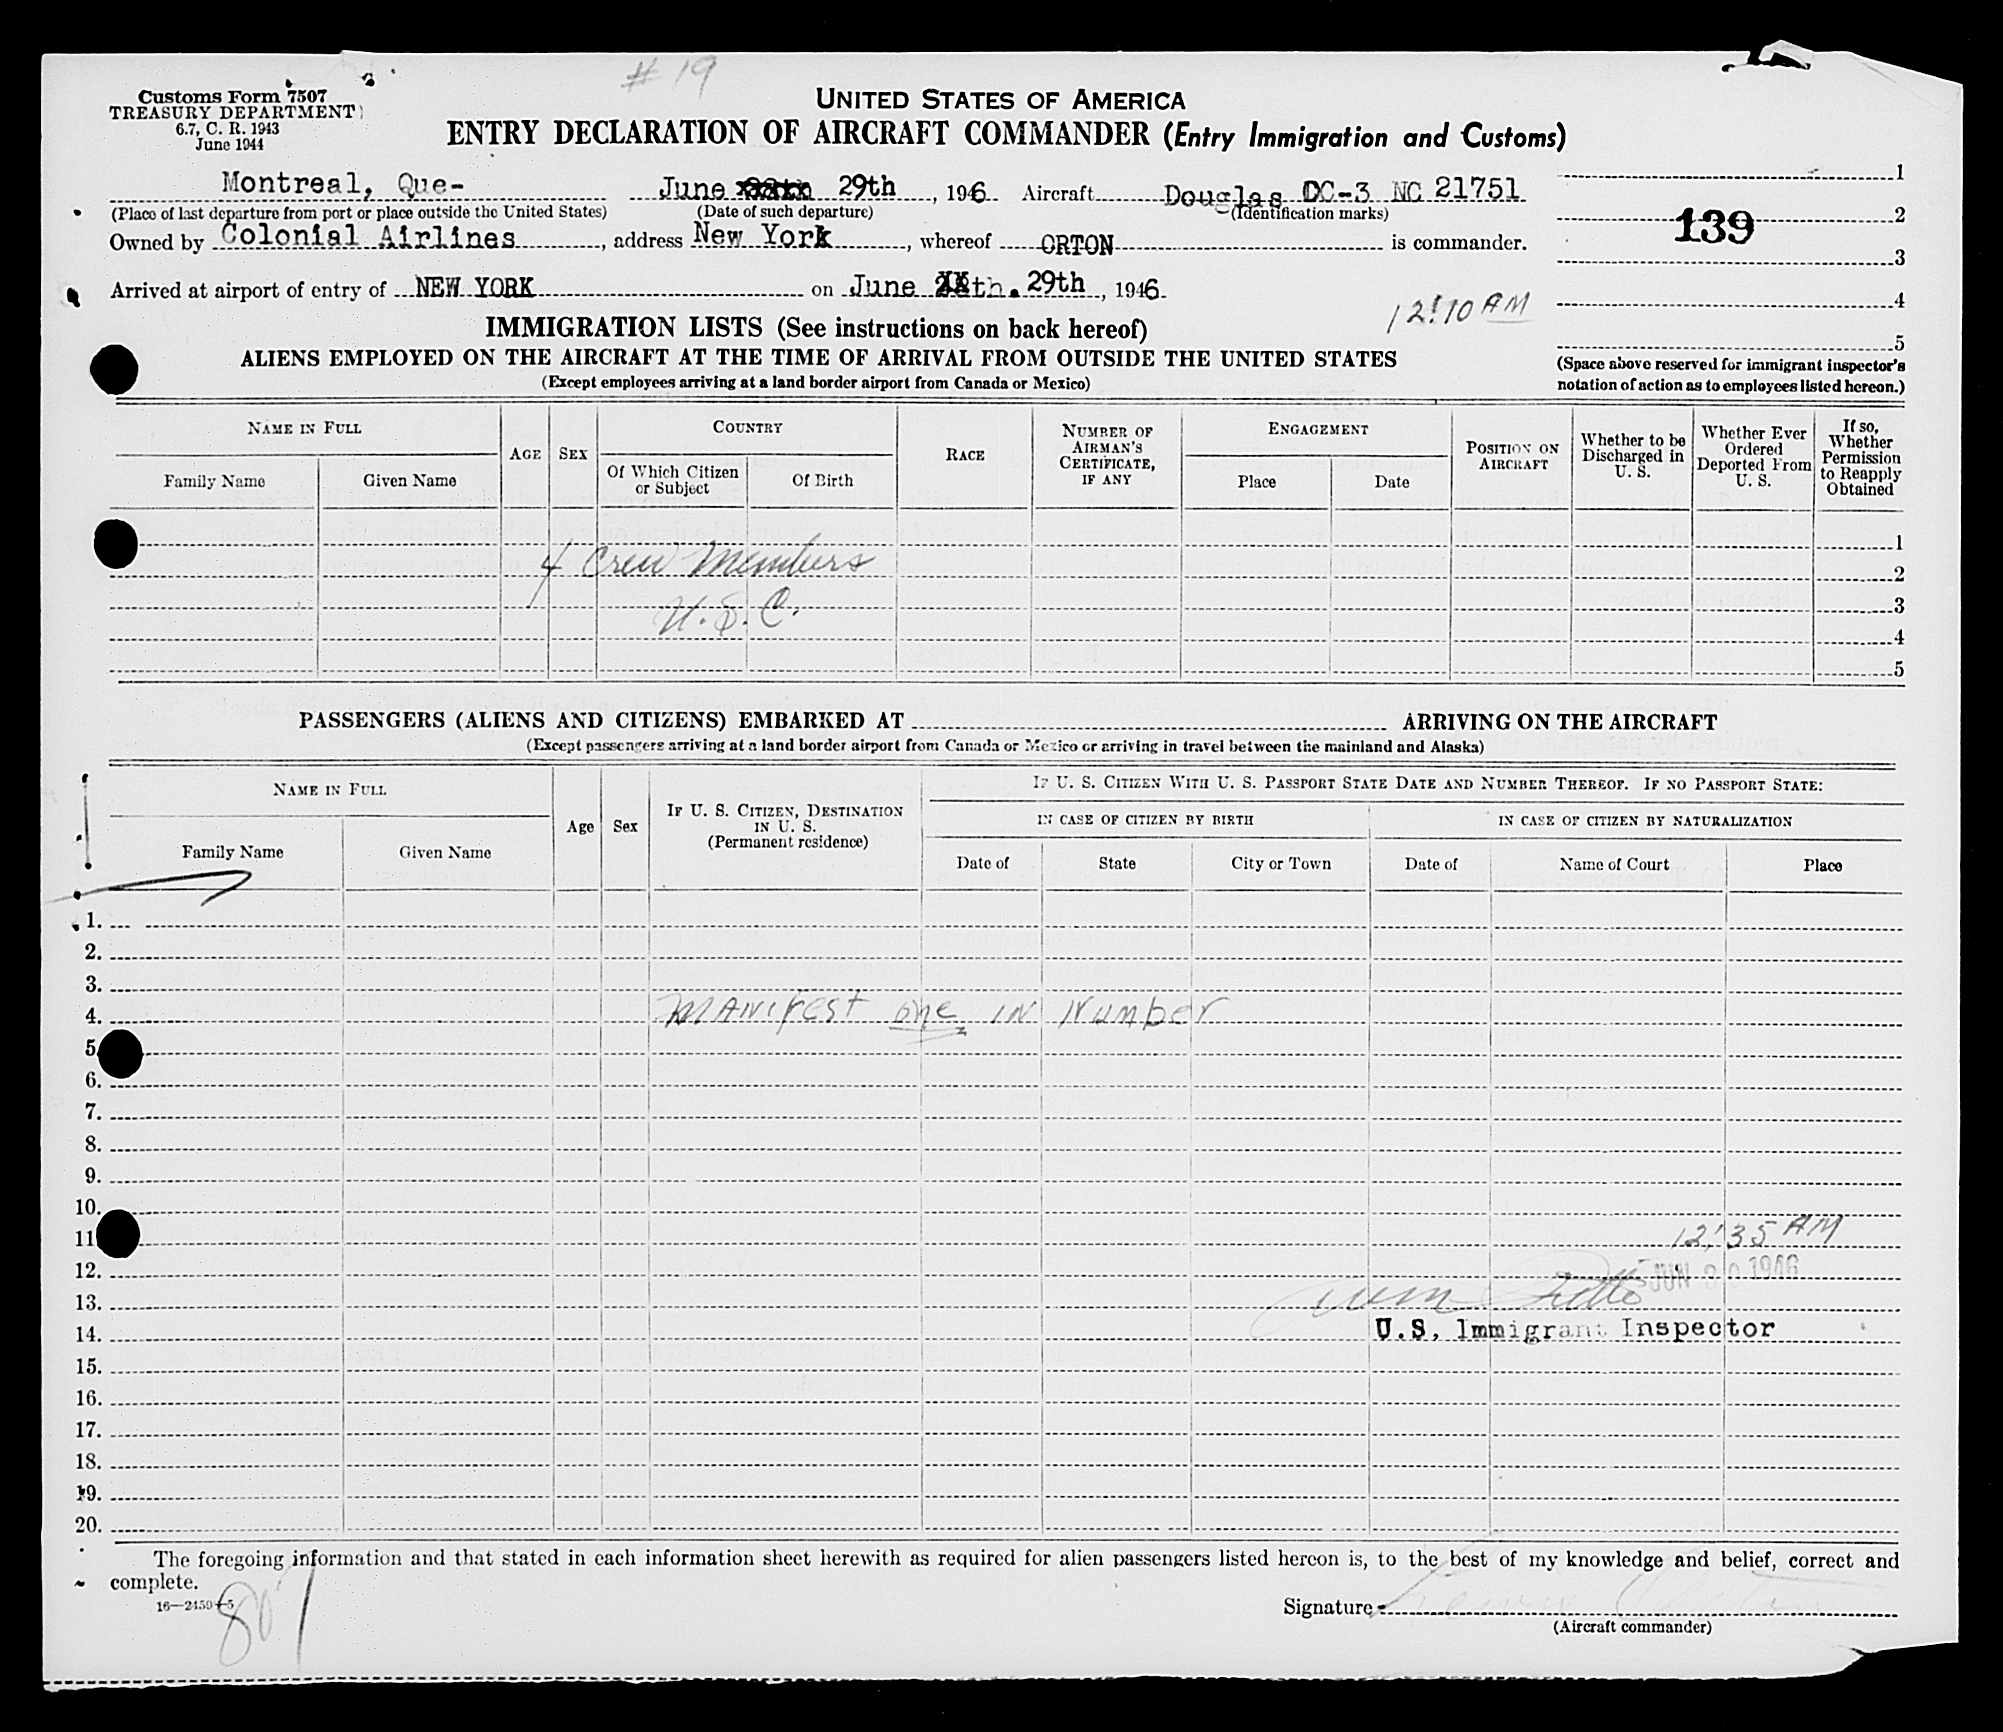 # 19
Customs Form 7507
TREASURY DEPARTMENT
6.7, C. R. 1943
June 1944
UNITED STATES OF AMERICA
ENTRY DECLARATION OF AIRCRAFT COMMANDER (Entry Immigration and Customs)
Montreal, Que- June 29th, 1946 Aircraft Douglas DC-3 NC 21751
(Place of last departure from port or place outside the United States) (Date of such departure) (Identification marks)
Owned by Colonial Airlines, address New York, whereof ORTON is commander.
Arrived at airport of entry of NEW YORK on June 29th, 1946
12:10 AM
1
2
139
3
4
5
(Space above reserved for immigrant inspector's
notation of action as to employees listed hereon.)
IMMIGRATION LISTS (See instructions on back hereof)
ALIENS EMPLOYED ON THE AIRCRAFT AT THE TIME OF ARRIVAL FROM OUTSIDE THE UNITED STATES
(Except employees arriving at a land border airport from Canada or Mexico)
NAME IN FULL
Family Name Given Name
AGE SEX
COUNTRY
Of Which Citizen or Subject Of Birth
RACE
NUMBER OF AIRMAN'S CERTIFICATE, IF ANY
ENGAGEMENT
Place Date
POSITION ON AIRCRAFT
Whether to be Discharged in U. S.
Whether Ever Ordered Deported From U. S.
If so, Whether Permission to Reapply Obtained
1
4 Crew Members
2
U.S.C.
3
4
5
PASSENGERS (ALIENS AND CITIZENS) EMBARKED AT ARRIVING ON THE AIRCRAFT
(Except passengers arriving at a land border airport from Canada or Mexico or arriving in travel between the mainland and Alaska)
NAME IN FULL
Family Name Given Name
Age Sex
IF U. S. CITIZEN, DESTINATION IN U. S. (Permanent residence)
IF U. S. CITIZEN WITH U. S. PASSPORT STATE DATE AND NUMBER THEREOF. IF NO PASSPORT STATE:
IN CASE OF CITIZEN BY BIRTH IN CASE OF CITIZEN BY NATURALIZATION
Date of State City or Town Date of Name of Court Place
1.
2.
3.
4. Manifest one in Number
5.
6.
7.
8.
9.
10.
11. 12:35 AM
12. JUN 30 1946
13. Wm
14. U.S. Immigrant Inspector
15.
16.
17.
18.
19.
20.
The foregoing information and that stated in each information sheet herewith as required for alien passengers listed hereon is, to the best of my knowledge and belief, correct and
complete.
16—2459-5
807
Signature
(Aircraft commander)